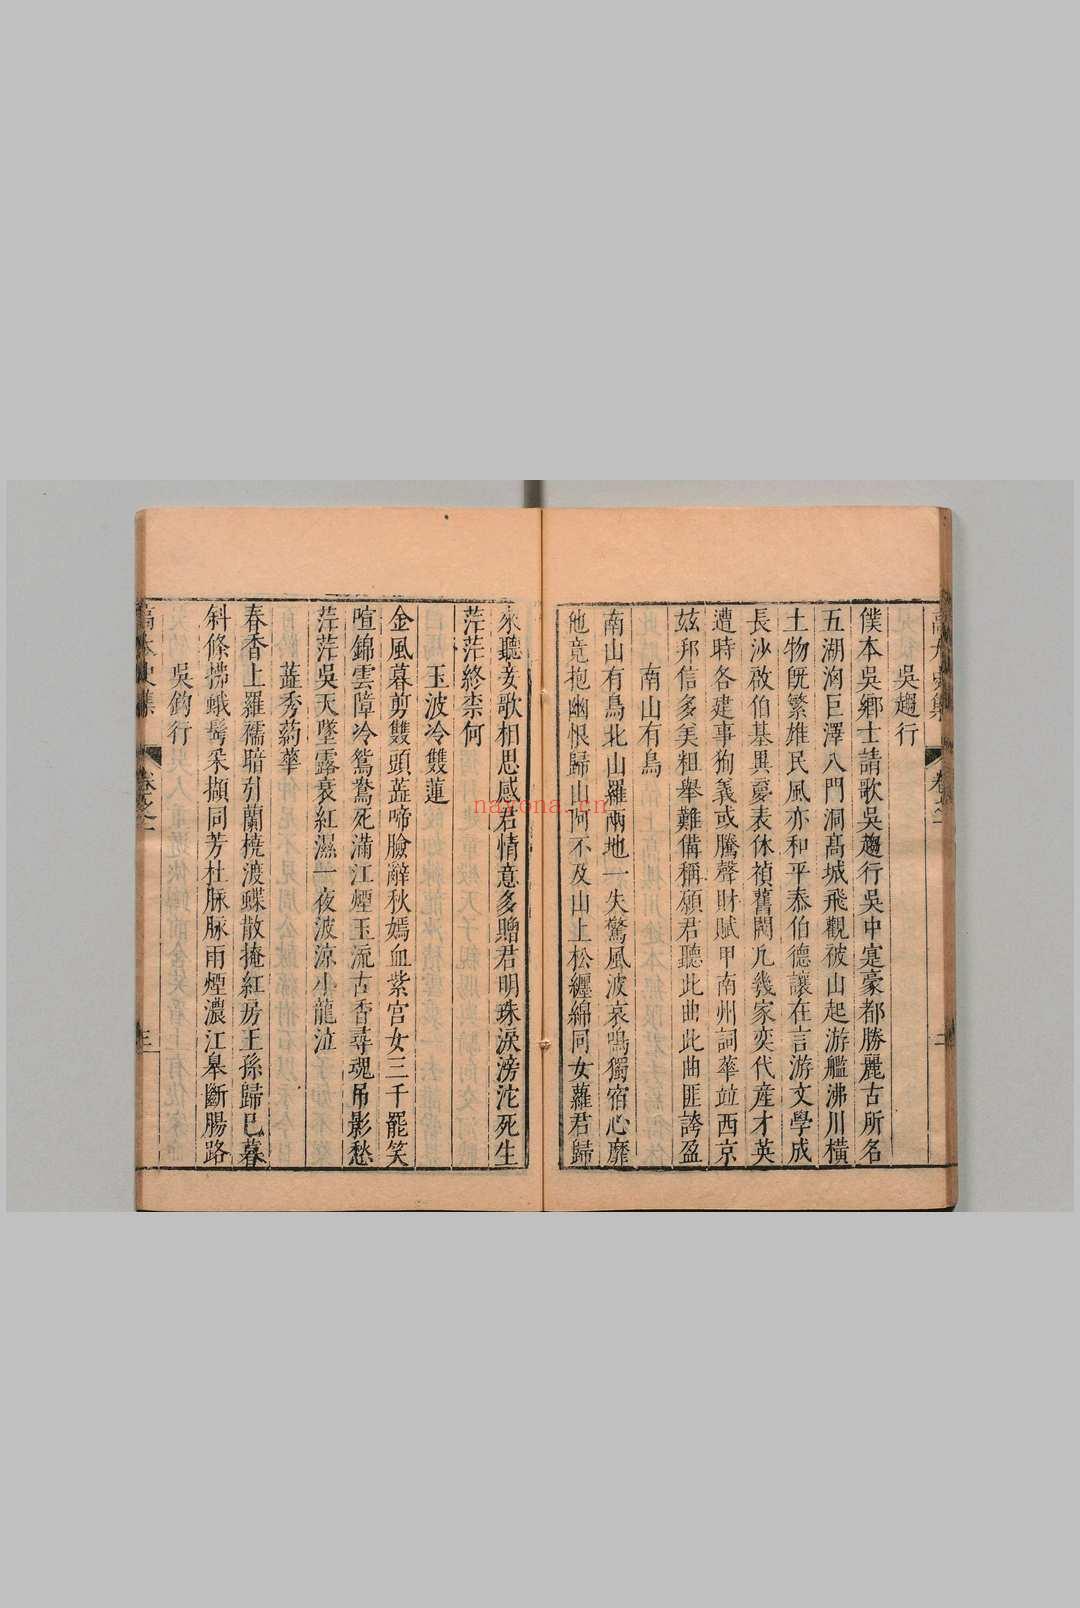 吳趨行
僕本吳鄉士請歌吳趨行吳中寔豪都勝麗古所名
五湖洶巨澤八門洞高城飛觀被山起游艦沸川橫
土物旣繁雄民風亦和平泰伯德讓在言游文學成
長沙啟伯基異夢表休禎舊閥凢幾家奕代産才英
遭時各建事狥義或騰聲財賦甲南州詞華竝西京
玆邦信多美粗舉難俻稱願君聽此曲此曲匪誇盈
南山有鳥
南山有鳥北山羅兩地一失驚風波哀鳴獨宿心靡
他竟抱幽恨歸山阿不及山上松纏綿同女蘿君歸
來聽妾歌相思感君情意多贈君明珠淚滂沱死生
茫茫終柰何
玉波冷雙蓮
金風暮剪雙頭蕋啼臉辭秋嫣血紫宮女三千罷笑
喧錦雲障冷鴛鴦死滿江煙玉流古香尋魂吊影愁
茫茫吳天墜露衰紅濕一夜波涼小龍泣
蕋秀葯華
春香上羅襦暗引蘭橈渡蝶散掩紅房王孫歸已暮
斜條拂蛾髩采擷同芳杜脉脉雨煙濃江皋斷腸路
吳鉤行
nayona.cn